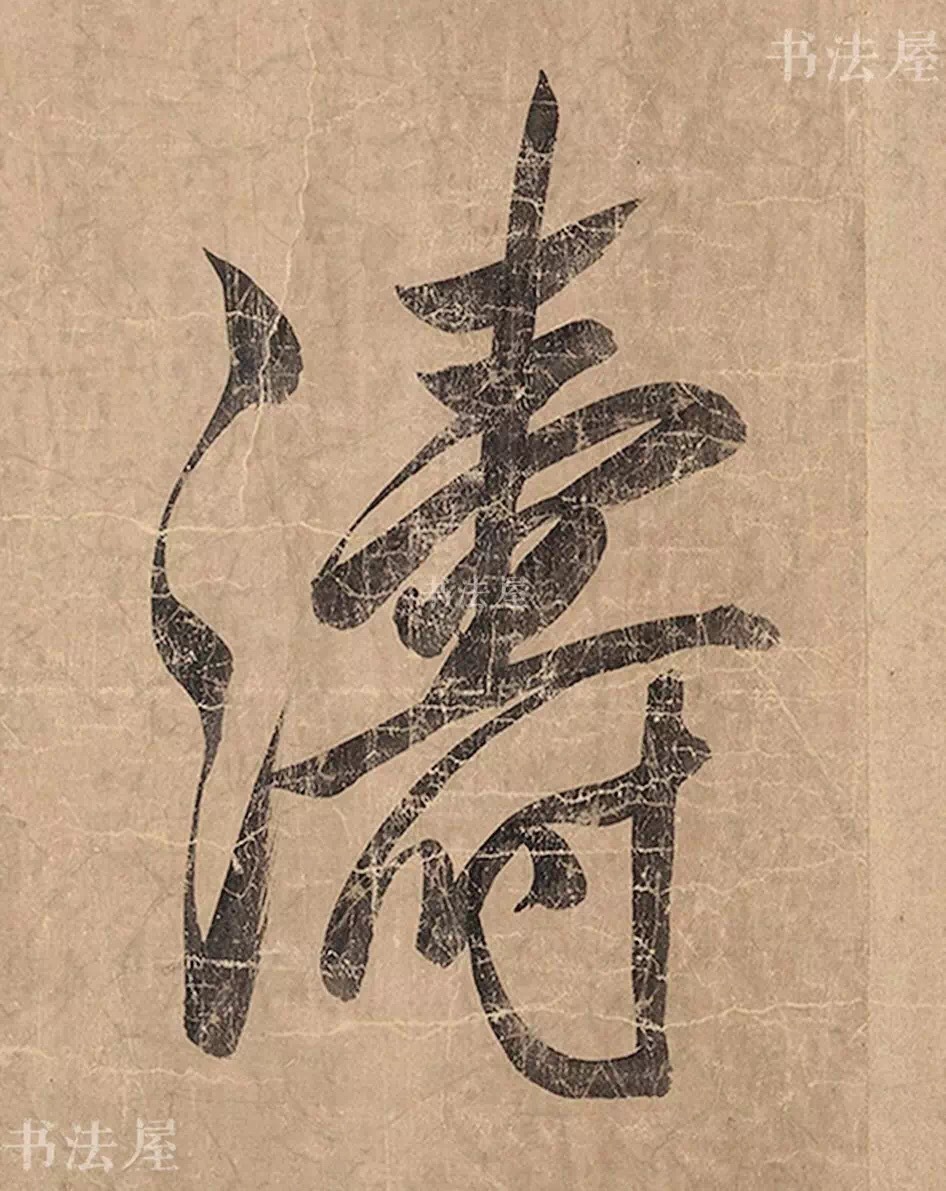 书法屋
濤
书法屋
书法屋